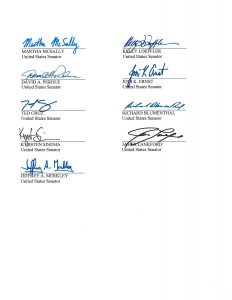 Martha McSally
MARTHA MCSALLY
United States Senator
KELLY LOEFFLER
United States Senator
DAVID A. PERDUE
United States Senator
Joni K. Ernst
JONI K. ERNST
United States Senator
TED CRUZ
United States Senator
Richard Blumenthal
RICHARD BLUMENTHAL
United States Senator
KYRSTEN SINEMA
United States Senator
JAMES LANKFORD
United States Senator
Jeffrey A. Merkley
JEFFREY A. MERKLEY
United States Senator